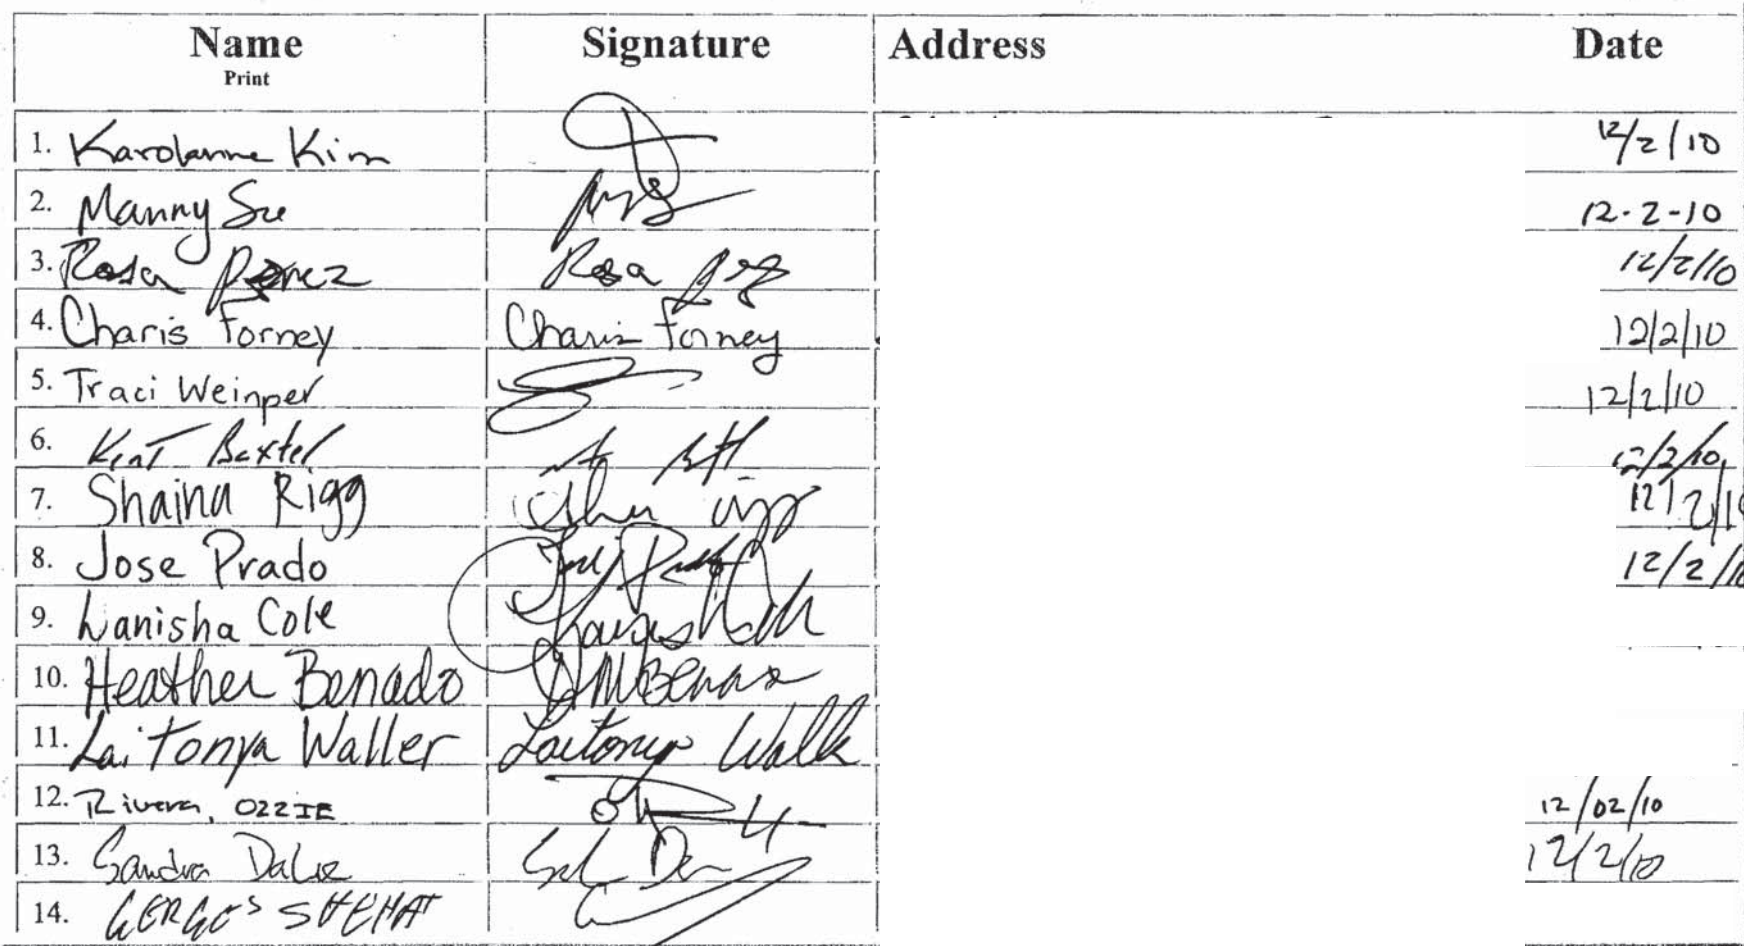 Name Signature Address Date
Print
1. Karolanne Kim 12/2/10
2. Manny Su 12-2-10
3. Rosa Perez Rosa 12/2/10
4. Charis Forney Charis Forney 12/2/10
5. Traci Weinper 12/2/10
6. Kent Baxter 12/2/10
7. Shaina Rigg 12/2/1
8. Jose Prado 12/2/1
9. Lanisha Cole
10. Heather Benado
11. LaiTonya Waller Laitonya
12. Rivera, OZZIE 12/02/10
13. Sandra 12/2/10
14. SHEHAT